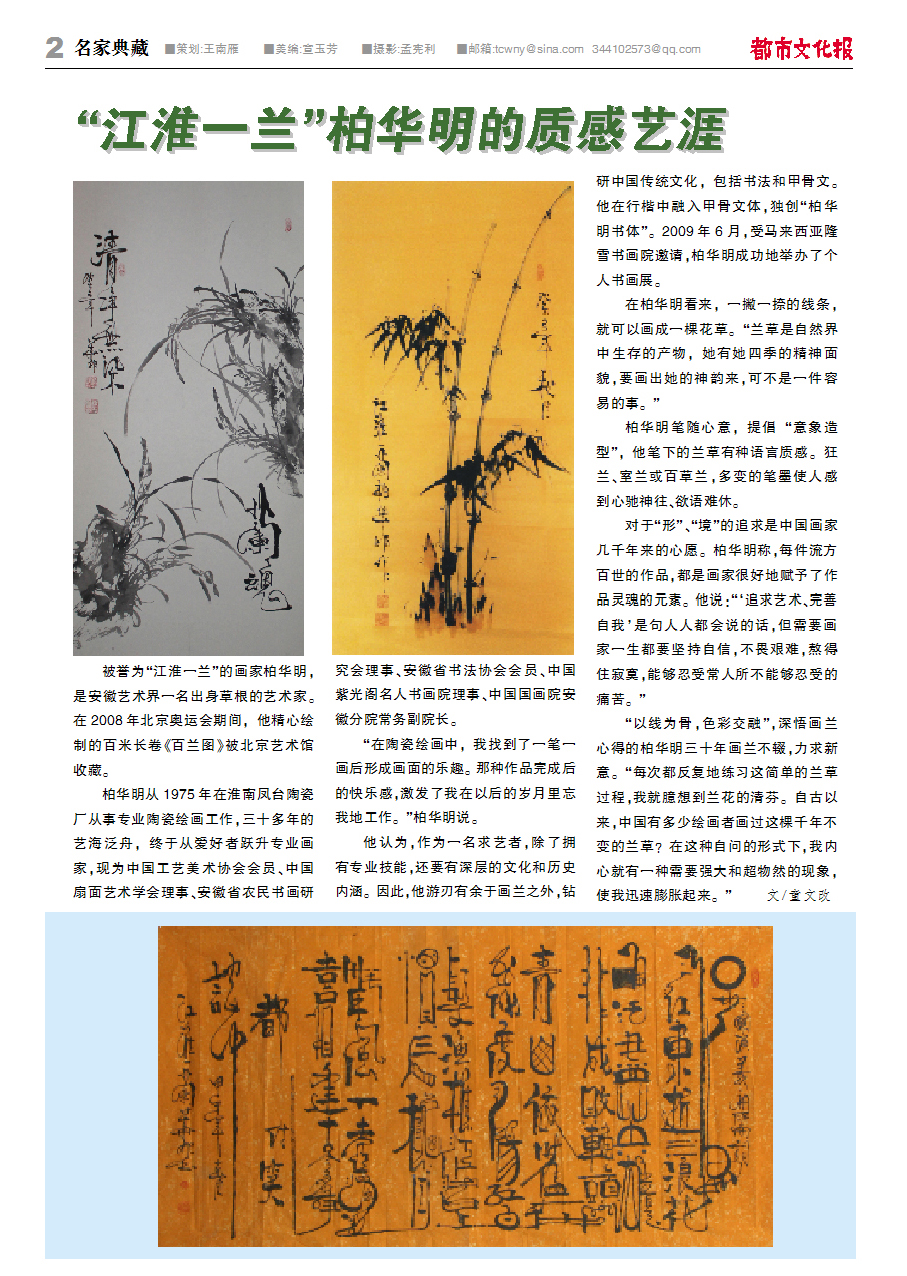 2 名家典藏 ■策划:王南雁 ■美编:宣玉芳 ■摄影:孟宪利 ■邮箱:tcwny@sina.com 344102573@qq.com 都市文化报
“江淮一兰”柏华明的质感艺涯
清气无染
兰魂
被誉为“江淮一兰”的画家柏华明，
是安徽艺术界一名出身草根的艺术家。
在 2008 年北京奥运会期间，他精心绘
制的百米长卷《百兰图》被北京艺术馆
收藏。
柏华明从 1975 年在淮南凤台陶瓷
厂从事专业陶瓷绘画工作,三十多年的
艺海泛舟，终于从爱好者跃升专业画
家,现为中国工艺美术协会会员、中国
扇面艺术学会理事、安徽省农民书画研
究会理事、安徽省书法协会会员、中国
紫光阁名人书画院理事、中国国画院安
徽分院常务副院长。
“在陶瓷绘画中，我找到了一笔一
画后形成画面的乐趣。那种作品完成后
的快乐感,激发了我在以后的岁月里忘
我地工作。”柏华明说。
他认为,作为一名求艺者,除了拥
有专业技能,还要有深层的文化和历史
内涵。因此,他游刃有余于画兰之外,钻
研中国传统文化，包括书法和甲骨文。
他在行楷中融入甲骨文体,独创“柏华
明书体”。2009 年 6 月,受马来西亚隆
雪书画院邀请,柏华明成功地举办了个
人书画展。
在柏华明看来，一撇一捺的线条，
就可以画成一棵花草。“兰草是自然界
中生存的产物，她有她四季的精神面
貌,要画出她的神韵来,可不是一件容
易的事。”
柏华明笔随心意，提倡“意象造
型”，他笔下的兰草有种语言质感。狂
兰、室兰或百草兰,多变的笔墨使人感
到心驰神往、欲语难休。
对于“形”、“境”的追求是中国画家
几千年来的心愿。柏华明称,每件流方
百世的作品,都是画家很好地赋予了作
品灵魂的元素。他说:“‘追求艺术、完善
自我’是句人人都会说的话,但需要画
家一生都要坚持自信,不畏艰难,熬得
住寂寞,能够忍受常人所不能够忍受的
痛苦。”
“以线为骨,色彩交融”,深悟画兰
心得的柏华明三十年画兰不辍,力求新
意。“每次都反复地练习这简单的兰草
过程,我就臆想到兰花的清芬。自古以
来,中国有多少绘画者画过这棵千年不
变的兰草？在这种自问的形式下,我内
心就有一种需要强大和超物然的现象，
使我迅速膨胀起来。” 文/童文改